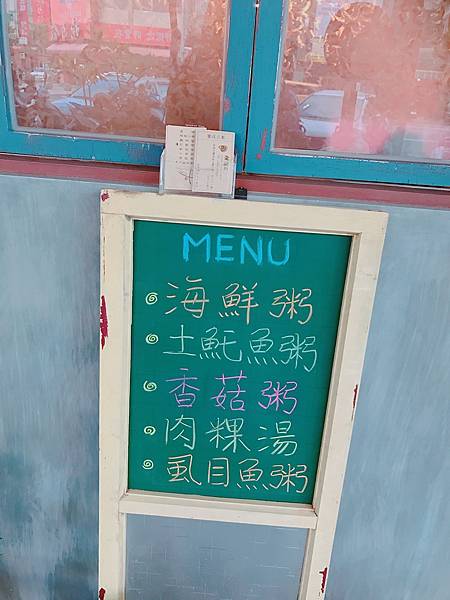 MENU
海鮮粥
土魠魚粥
香菇粥
肉粿湯
虱目魚粥